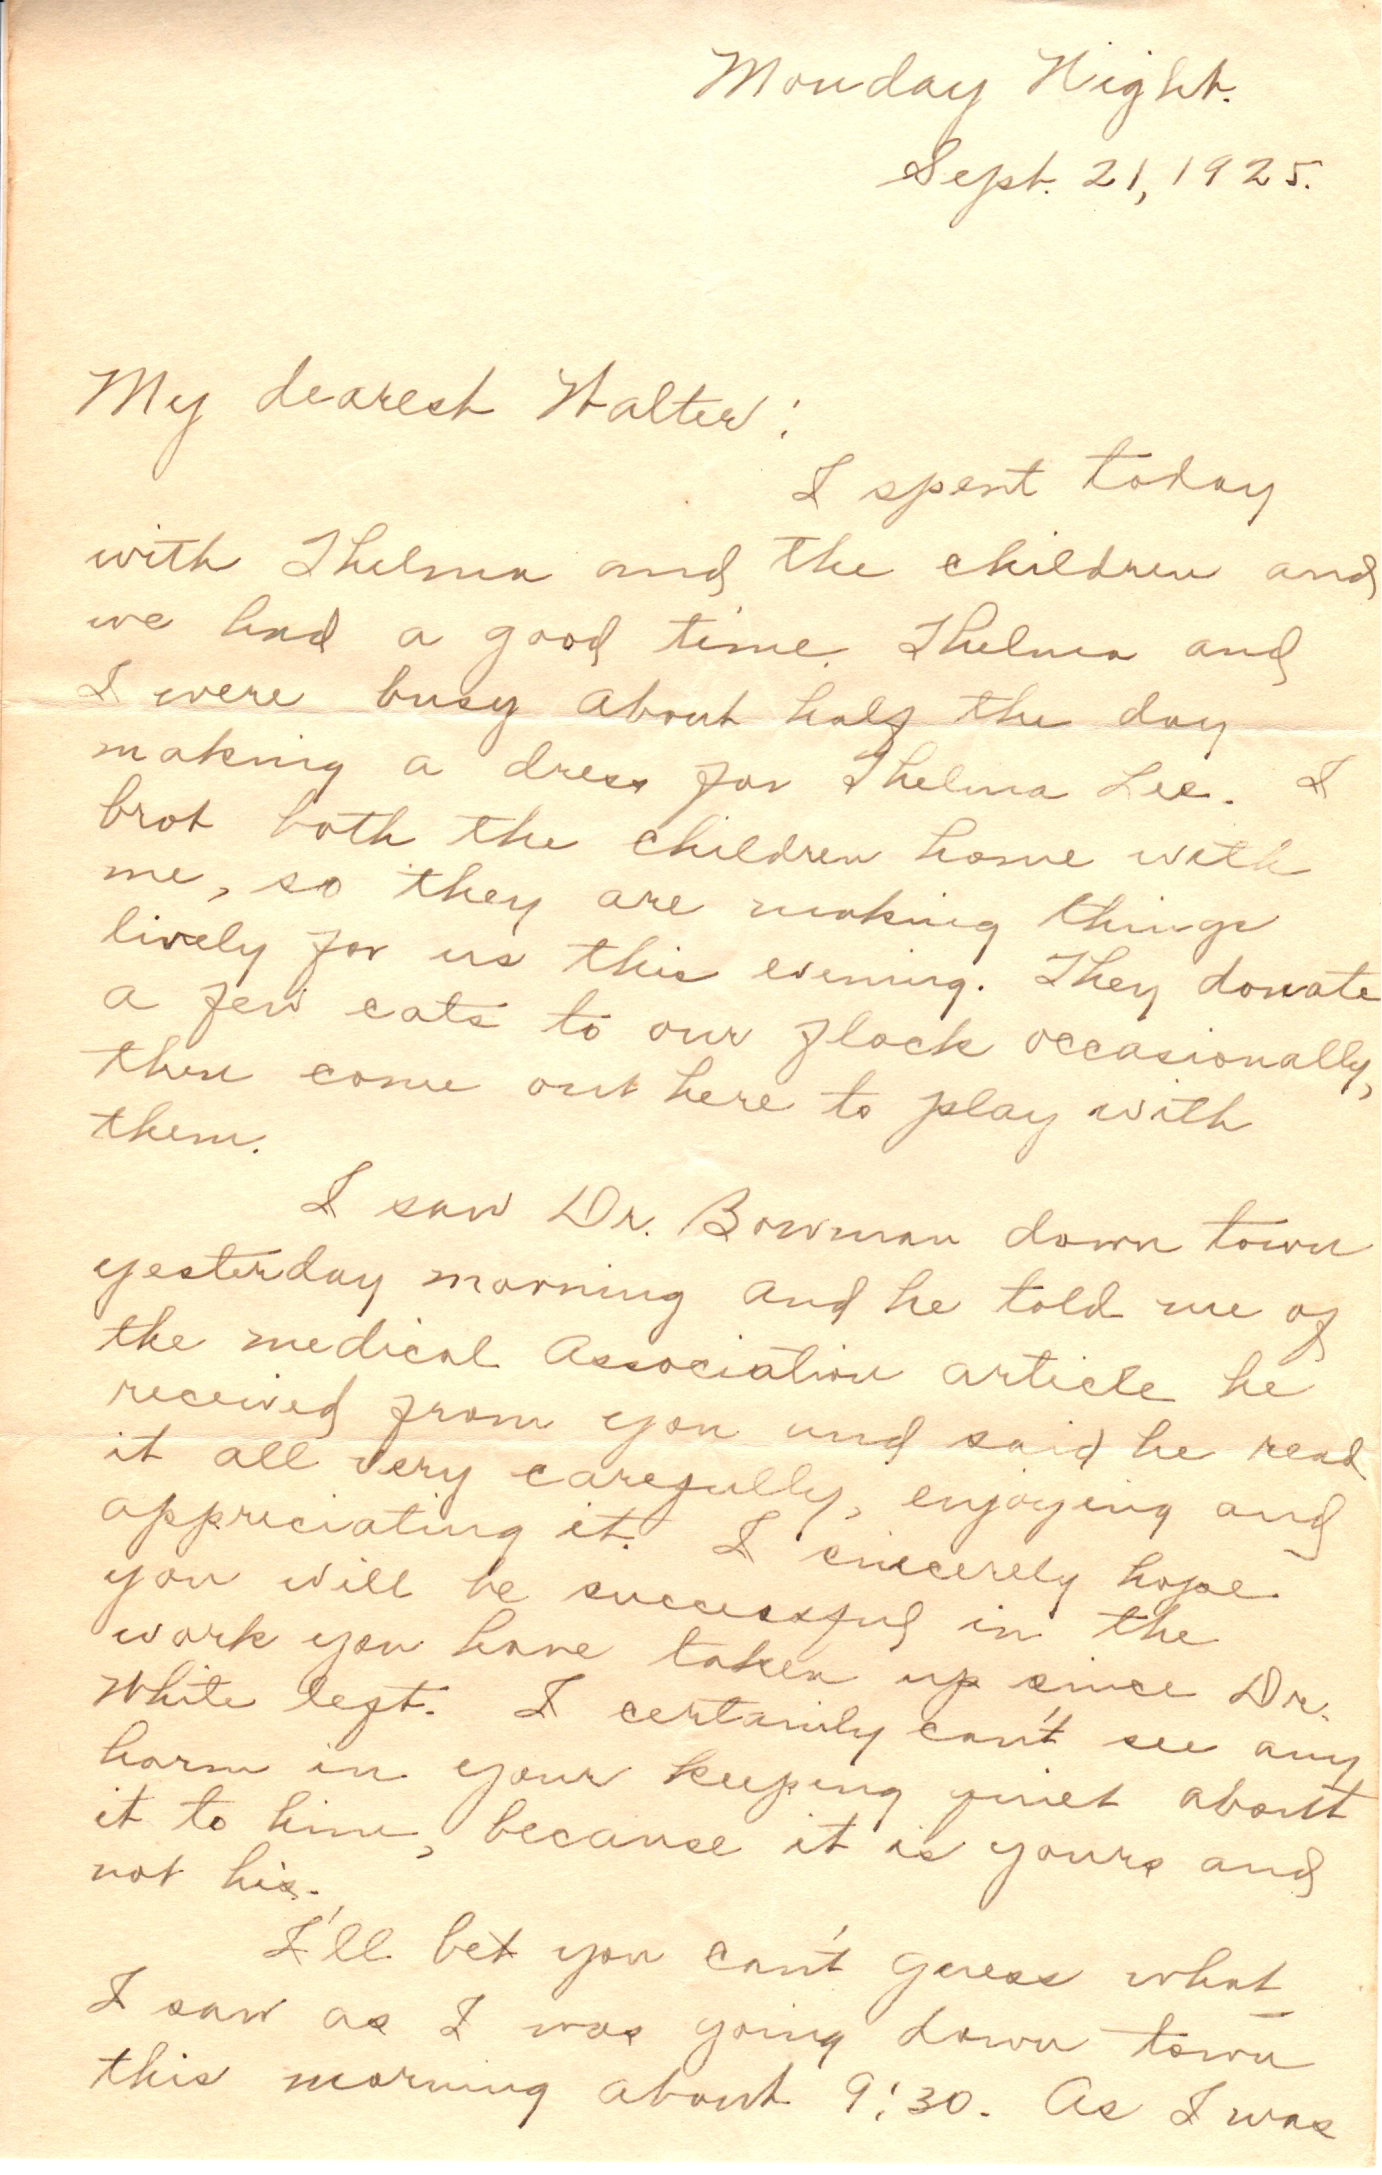 Monday Night.
Sept. 21, 1925.
My dearest Walter:
I spent today
with Thelma and the children and
we had a good time. Thelma and
I were busy about half the day
making a dress for Thelma Lee. I
brot both the children home with
me, so they are making things
lively for us this evening. They donate
a few cats to our flock occasionally,
then come out here to play with
them.
I saw Dr. Bowman down town
yesterday morning and he told me of
the medical Association article he
received from you and said he read
it all very carefully, enjoying and
appreciating it. I sincerely hope
you will be successful in the
work you have taken up since Dr.
White left. I certainly can't see any
harm in your keeping quiet about
it to him, because it is yours and
not his.
I'll bet you can't guess what
I saw as I was going down town
this morning about 9:30. As I was